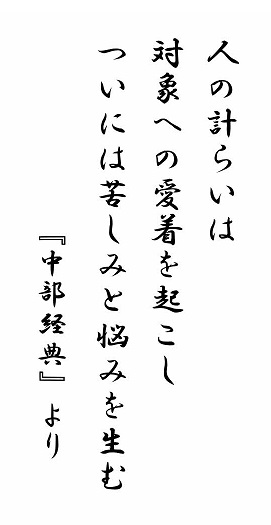 人の計らいは
対象への愛着を起こし
ついには苦しみと悩みを生む
『中部経典』より